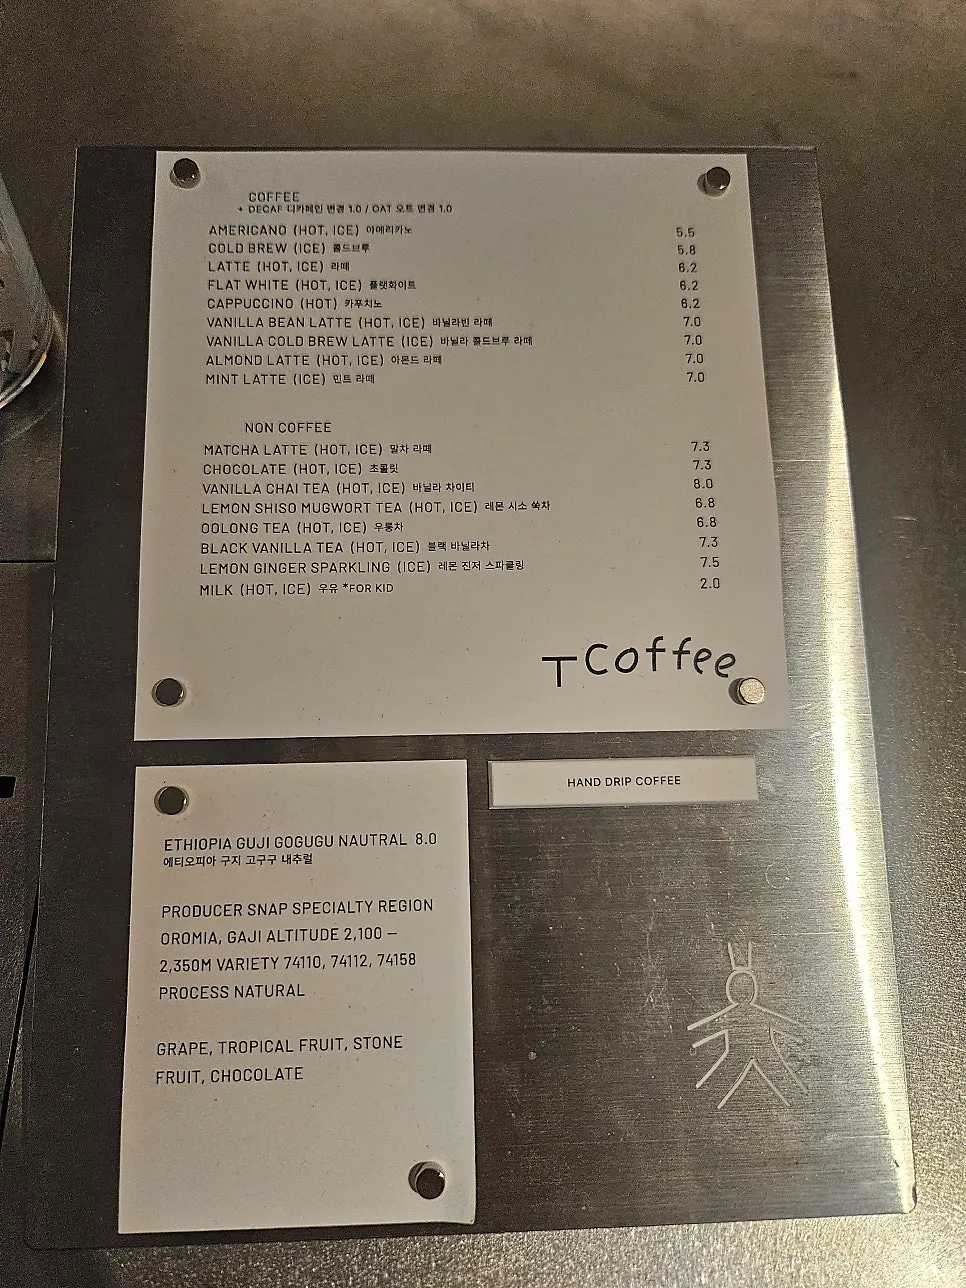 COFFEE
+ DECAF 디카페인 변경 1.0 / OAT 오트 변경 1.0
AMERICANO (HOT, ICE) 아메리카노 5.5
COLD BREW (ICE) 콜드브루 5.8
LATTE (HOT, ICE) 라떼 6.2
FLAT WHITE (HOT, ICE) 플랫화이트 6.2
CAPPUCCINO (HOT) 카푸치노 6.2
VANILLA BEAN LATTE (HOT, ICE) 바닐라빈 라떼 7.0
VANILLA COLD BREW LATTE (ICE) 바닐라 콜드브루 라떼 7.0
ALMOND LATTE (HOT, ICE) 아몬드 라떼 7.0
MINT LATTE (ICE) 민트 라떼 7.0
NON COFFEE
MATCHA LATTE (HOT, ICE) 말차 라떼 7.3
CHOCOLATE (HOT, ICE) 초콜릿 7.3
VANILLA CHAI TEA (HOT, ICE) 바닐라 차이티 8.0
LEMON SHISO MUGWORT TEA (HOT, ICE) 레몬 시소 쑥차 6.8
OOLONG TEA (HOT, ICE) 우롱차 6.8
BLACK VANILLA TEA (HOT, ICE) 블랙 바닐라차 7.3
LEMON GINGER SPARKLING (ICE) 레몬 진저 스파클링 7.5
MILK (HOT, ICE) 우유 *FOR KID 2.0
T Coffee
HAND DRIP COFFEE
ETHIOPIA GUJI GOGUGU NAUTRAL 8.0
에티오피아 구지 고구구 내추럴
PRODUCER SNAP SPECIALTY REGION
OROMIA, GAJI ALTITUDE 2,100 –
2,350M VARIETY 74110, 74112, 74158
PROCESS NATURAL
GRAPE, TROPICAL FRUIT, STONE
FRUIT, CHOCOLATE